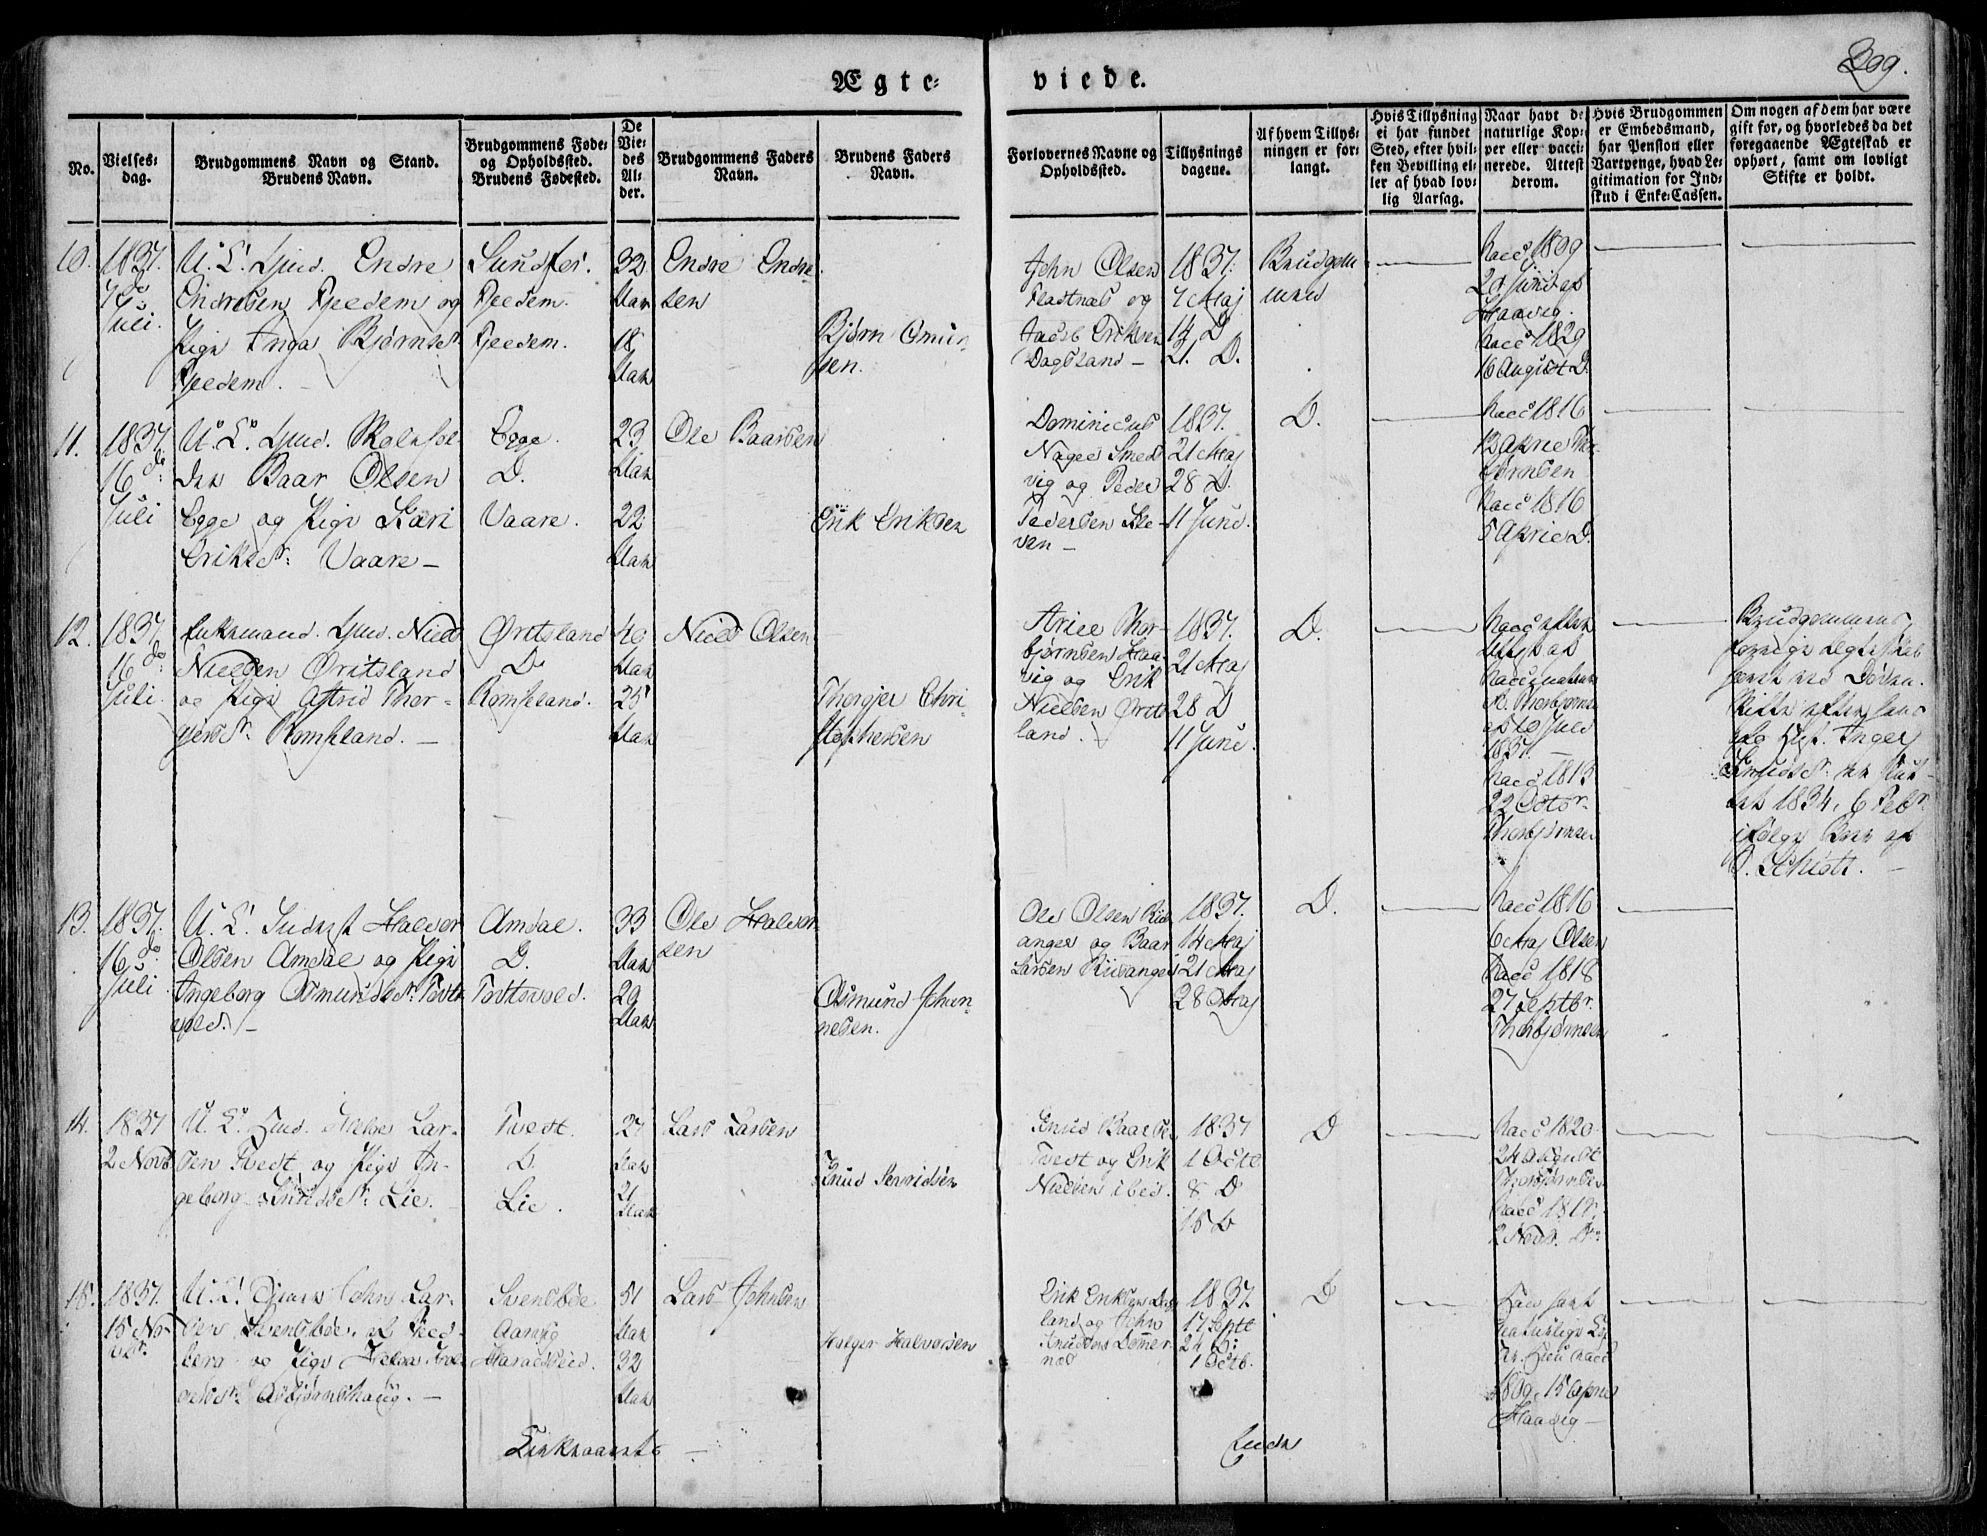 Ægte- viede.
209.
No.
Vielses-
dag.
Brudgommens Navn og Stand.
Brudens Navn.
Brudgommens Føde-
og Opholdssted.
Brudens Fødested.
De
Vie-
des
Al-
der.
Brudgommens Faders
Navn.
Brudens Faders
Navn.
Forlovernes Navne og
Opholdssted.
Tillysnings
dagene.
Af hvem Tillys-
ningen er for-
langt.
Hvis Tillysning
ei har fundet
Sted, efter hvil-
ken Bevilling el-
ler af hvad lov-
lig Aarsag.
Naar havt de
naturlige Kop-
per eller vacci-
nerede. Attest
derom.
Hvis Brudgommen
er Embedsmand,
har Pension eller
Vartpenge, hvad Le-
gitimation for Ind-
skud i Enke-Cassen.
Om nogen af dem har være
gift før, og hvorledes da det
foregaaende Ægteskab er
ophørt, samt om lovligt
Skifte er holdt.
10.
1837.
Juli.
U. L. Gjud. Endre
Endresen Fjedem og
Pige Inga Bjørnsdr
Fjedem. -
Sundfør.
Fjedem.
Fjedem.
32
Aar
18
Aar
Endre Endre
sen
Bjørn Omun-
sen.
John Olsen
Fladtnæs og
Eriksen
Dagsland -
1837.
7 Maj
14 D
21. D.
Brudgom
men
vacc 1809
20 Juni af
Haavig.
vacc 1829
16 August D.
11.
1837.
16 de
Juli
U. L. Gjud. Skolehol
der Baar Olsen
Egge og Pige Kari
Eriksdr: Vaare -
Egge.
D.
Vaare.
23
Aar
22
Aar
Ole Baarsen
Erik Eriksen
Dominicus
Nagel Smed
vig og Peder
Pedersen Kle-
ven -
1837.
21 Maj
28 D.
11 Juni.
D.
vacc 1816
12 April Thor-
bjørnsen
vacc 1816
5 April D.
12.
1837.
16 de
Juli.
Enkemand. Gjud. Niels
Nielsen Øritsland
og Pige Astrid Thor-
gjersdr: Romsland. -
Øritsland
D.
Romsland.
40
Aar
25
Aar
Niels Olsen
Thorgjer Chri-
stophersen
Arne Thor-
bjørnsen Haa-
vig og Erik
Nielsen Øritsland.
1837.
21 Maj
28 D
11 Juni.
D.
vacc efter
af
Thorbjørnsen
af 10 Juli
1837. -
vacc 1813
22 Octbr.
Thorbjørnsen
Brudgommens
forrige Ægteskab
hævet ved Døden.
Skifte efter hans
Hst. Inger
Knudsdr: er slut-
tet 1834, 6 Febr.
ifølge Brev af
P. Schiøtt. -
13.
1837.
16 de
Juli
U. L. Halvor
Olsen Amdal og Pige
Ingeborg Osmundsdr: Tveits
vold. -
Amdal.
D.
Tveitsvold.
33
Aar
29
Aar
Ole Halvor
sen
Osmund Johan-
nesen.
Ole Olsen Rid-
anger og Baar
Larsen Ridanger
1837.
14 Maj
21 Maj
28 Maj
D.
vacc 1816
6 Maj Olsen
vacc 1818
27 Septbr.
Thorbjørnsen
14.
1837
2 Novb
U. L. Gjud. Helge Lar-
sen Tvedt og Pige In-
geborg Knudsdr: Lie.
Tvedt.
D.
Lie.
27
Aar
21
Aar
Lars Larsen
Knud Sevridsen
Knud Baarsen
Tvedt og Erik
Nielsen ibid.
1837
1 Octb.
8 D
15 D
D
vacc 1820
24 August
Thorbjørnsen
vacc 1818.
2 Novbr. Do
15.
1837.
15 No-
vbr.
U. L. John Lar-
sen Svensbøe, af
og Pige
Asbjørnshaug. -
Svensbøe
Aarvig
Haraldseid.
51
Aar
32
Aar
Lars Johnsen
Holger Halvorsen
Erik Eriksen Dags
land og John
Knudsen Dommer-
nes
1837.
17 Septb
24 D:
1 Octb.
D
naturlige
vacc
1809, 15 April
Haavig -
Kirkeaarets - Ende